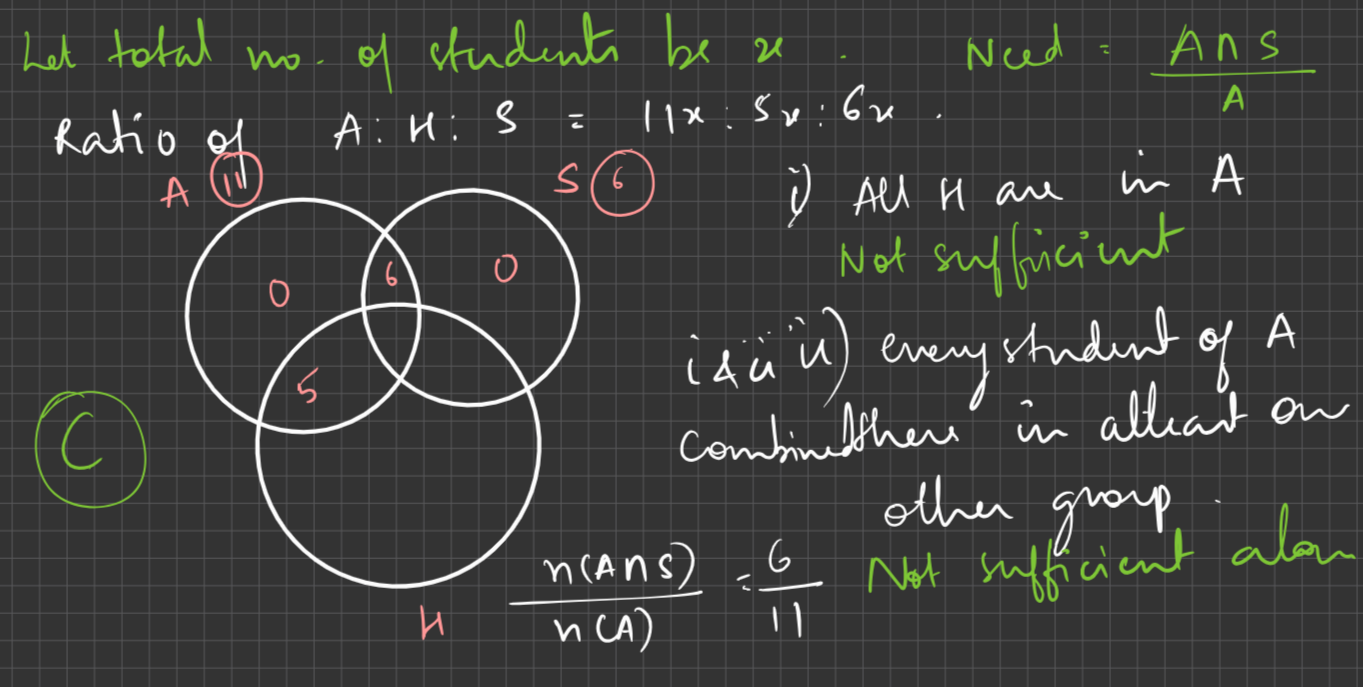 Let total no. of students be x . Need = A∩S / A
Ratio of A : H : S = 11x : 5x : 6x .
A 11 S 6
i) All H are in A
Not sufficient
0 6 0
5
ii) every student of A
there in atleast on
other group .
Not sufficient alon
i & ii
combined
C
n(A∩S) / n(A) = 6 / 11
H